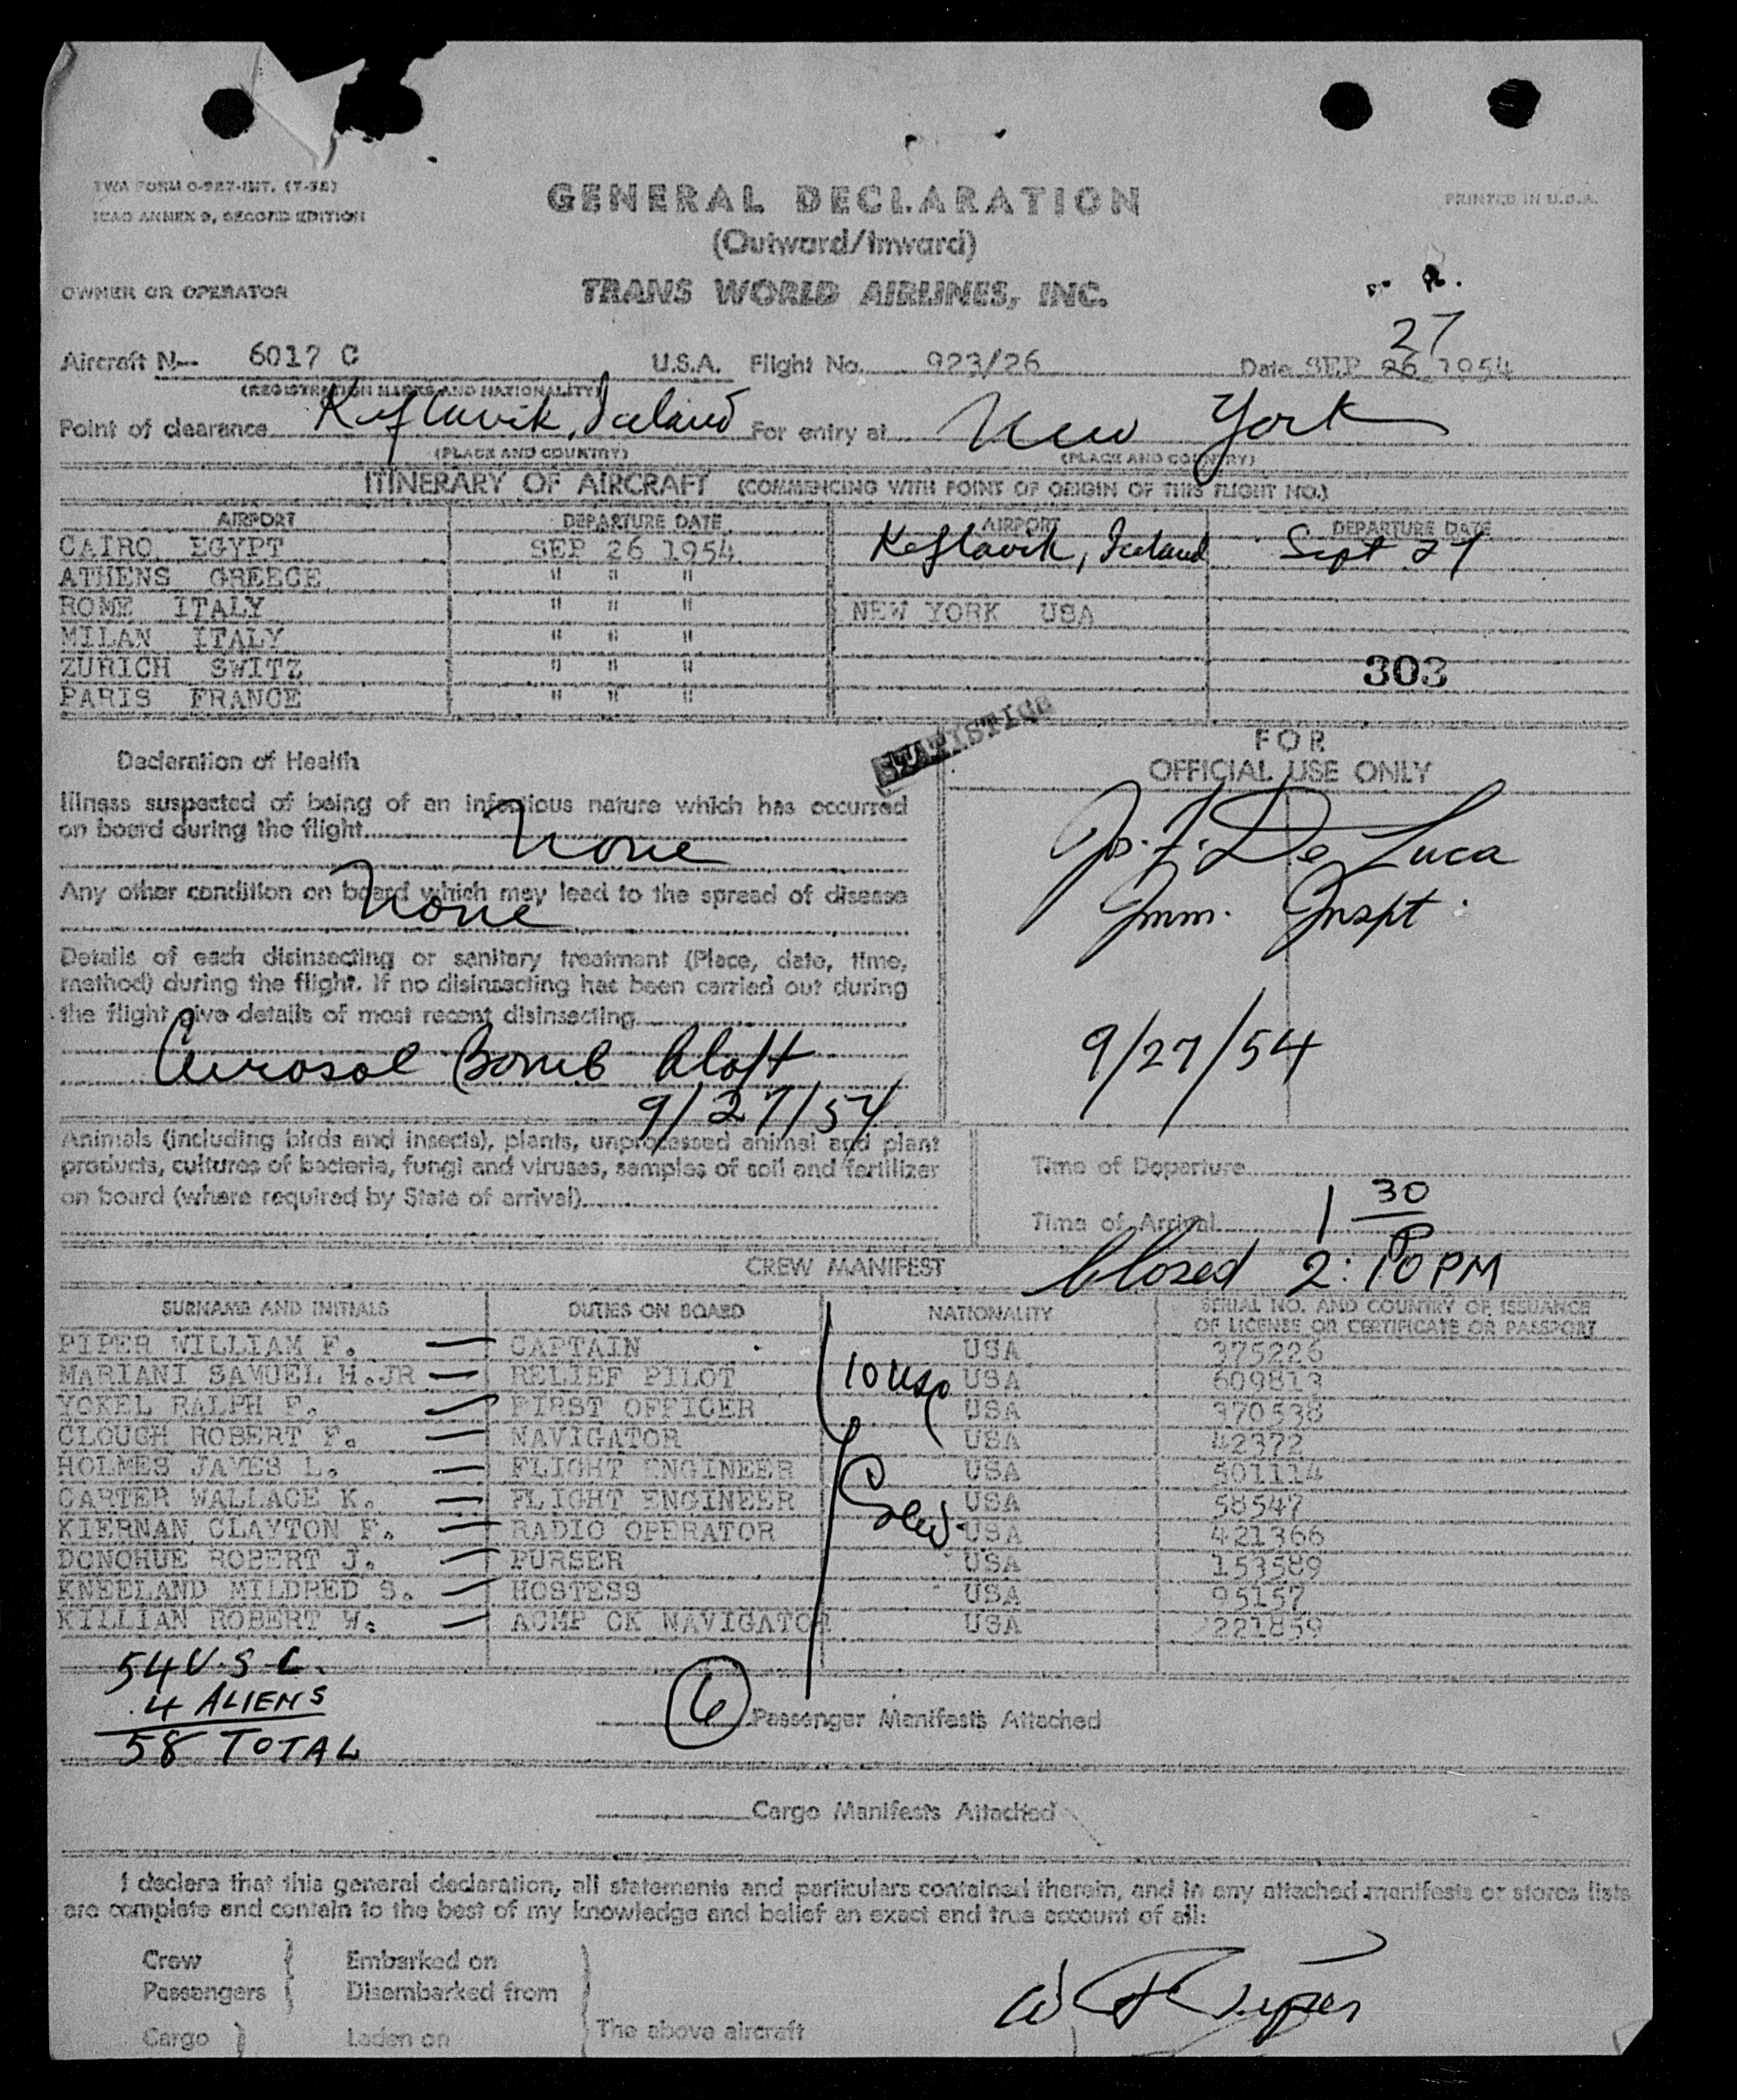 TWA FORM O-927-INT. (7-52)
ICAO ANNEX 9, SECOND EDITION
GENERAL DECLARATION
PRINTED IN U.S.A.
(Outward/Inward)
OWNER OR OPERATOR
TRANS WORLD AIRLINES, INC.
27
Aircraft N-- 6017 C U.S.A. Flight No. 923/26 Date SEP 26 1954
(REGISTRATION MARKS AND NATIONALITY)
Point of clearance Keflavik, Iceland For entry at New York
(PLACE AND COUNTRY) (PLACE AND COUNTRY)
ITINERARY OF AIRCRAFT (COMMENCING WITH POINT OF ORIGIN OF THIS FLIGHT NO.)
AIRPORT DEPARTURE DATE AIRPORT DEPARTURE DATE
CAIRO EGYPT SEP 26 1954 Keflavik, Iceland Sept 27
ATHENS GREECE " " "
ROME ITALY " " " NEW YORK USA
MILAN ITALY " " "
ZURICH SWITZ " " " 303
PARIS FRANCE " " "
STATISTICS
FOR
OFFICIAL USE ONLY
Declaration of Health
Illness suspected of being of an infectious nature which has occurred
on board during the flight
None
Any other condition on board which may lead to the spread of disease
None
Details of each disinsecting or sanitary treatment (Place, date, time,
method) during the flight. If no disinsecting has been carried out during
the flight give details of most recent disinsecting
Aerosol Bomb Aloft
9/27/54
De Luca
Imm. Inspt.
9/27/54
Animals (including birds and insects), plants, unprocessed animal and plant
products, cultures of bacteria, fungi and viruses, samples of soil and fertilizer
on board (where required by State of arrival)
Time of Departure
Time of Arrival 1 30 P
closed 2:10 PM
CREW MANIFEST
SURNAME AND INITIALS DUTIES ON BOARD NATIONALITY SERIAL NO. AND COUNTRY OF ISSUANCE
OF LICENSE OR CERTIFICATE OR PASSPORT
PIPER WILLIAM F. CAPTAIN USA 375226
MARIANI SAMUEL H.JR RELIEF PILOT USA 609813
YOKEL RALPH F. FIRST OFFICER USA 370538
CLOUGH ROBERT F. NAVIGATOR USA 42372
HOLMES JAMES L. FLIGHT ENGINEER USA 501114
CARTER WALLACE K. FLIGHT ENGINEER USA 58547
KIERNAN CLAYTON F. RADIO OPERATOR USA 421366
DONOHUE ROBERT J. PURSER USA 153589
KNEELAND MILDRED S. HOSTESS USA 95157
KILLIAN ROBERT W. ACMP CK NAVIGATOR USA 221859
54 U.S.C.
4 ALIENS
58 TOTAL
6 Passenger Manifests Attached
Cargo Manifests Attached
I declare that this general declaration, all statements and particulars contained therein, and in any attached manifests or stores lists
are complete and contain to the best of my knowledge and belief an exact and true account of all:
Crew Embarked on
Passengers Disembarked from
Cargo Laden on The above aircraft
W F Piper